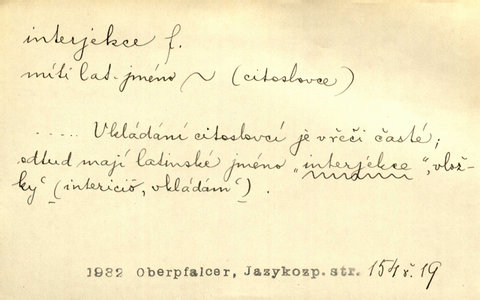 interjekce f.
míti lat. jméno ~ (citoslovce)
..... Vkládání citoslovcí je v řeči časté;
odtud mají latinské jméno „interjekce“, „vlož-
ky“ (intericiō, vkládám“) .
1932 Oberpfalcer, Jazykozp. str. 154 ř. 19